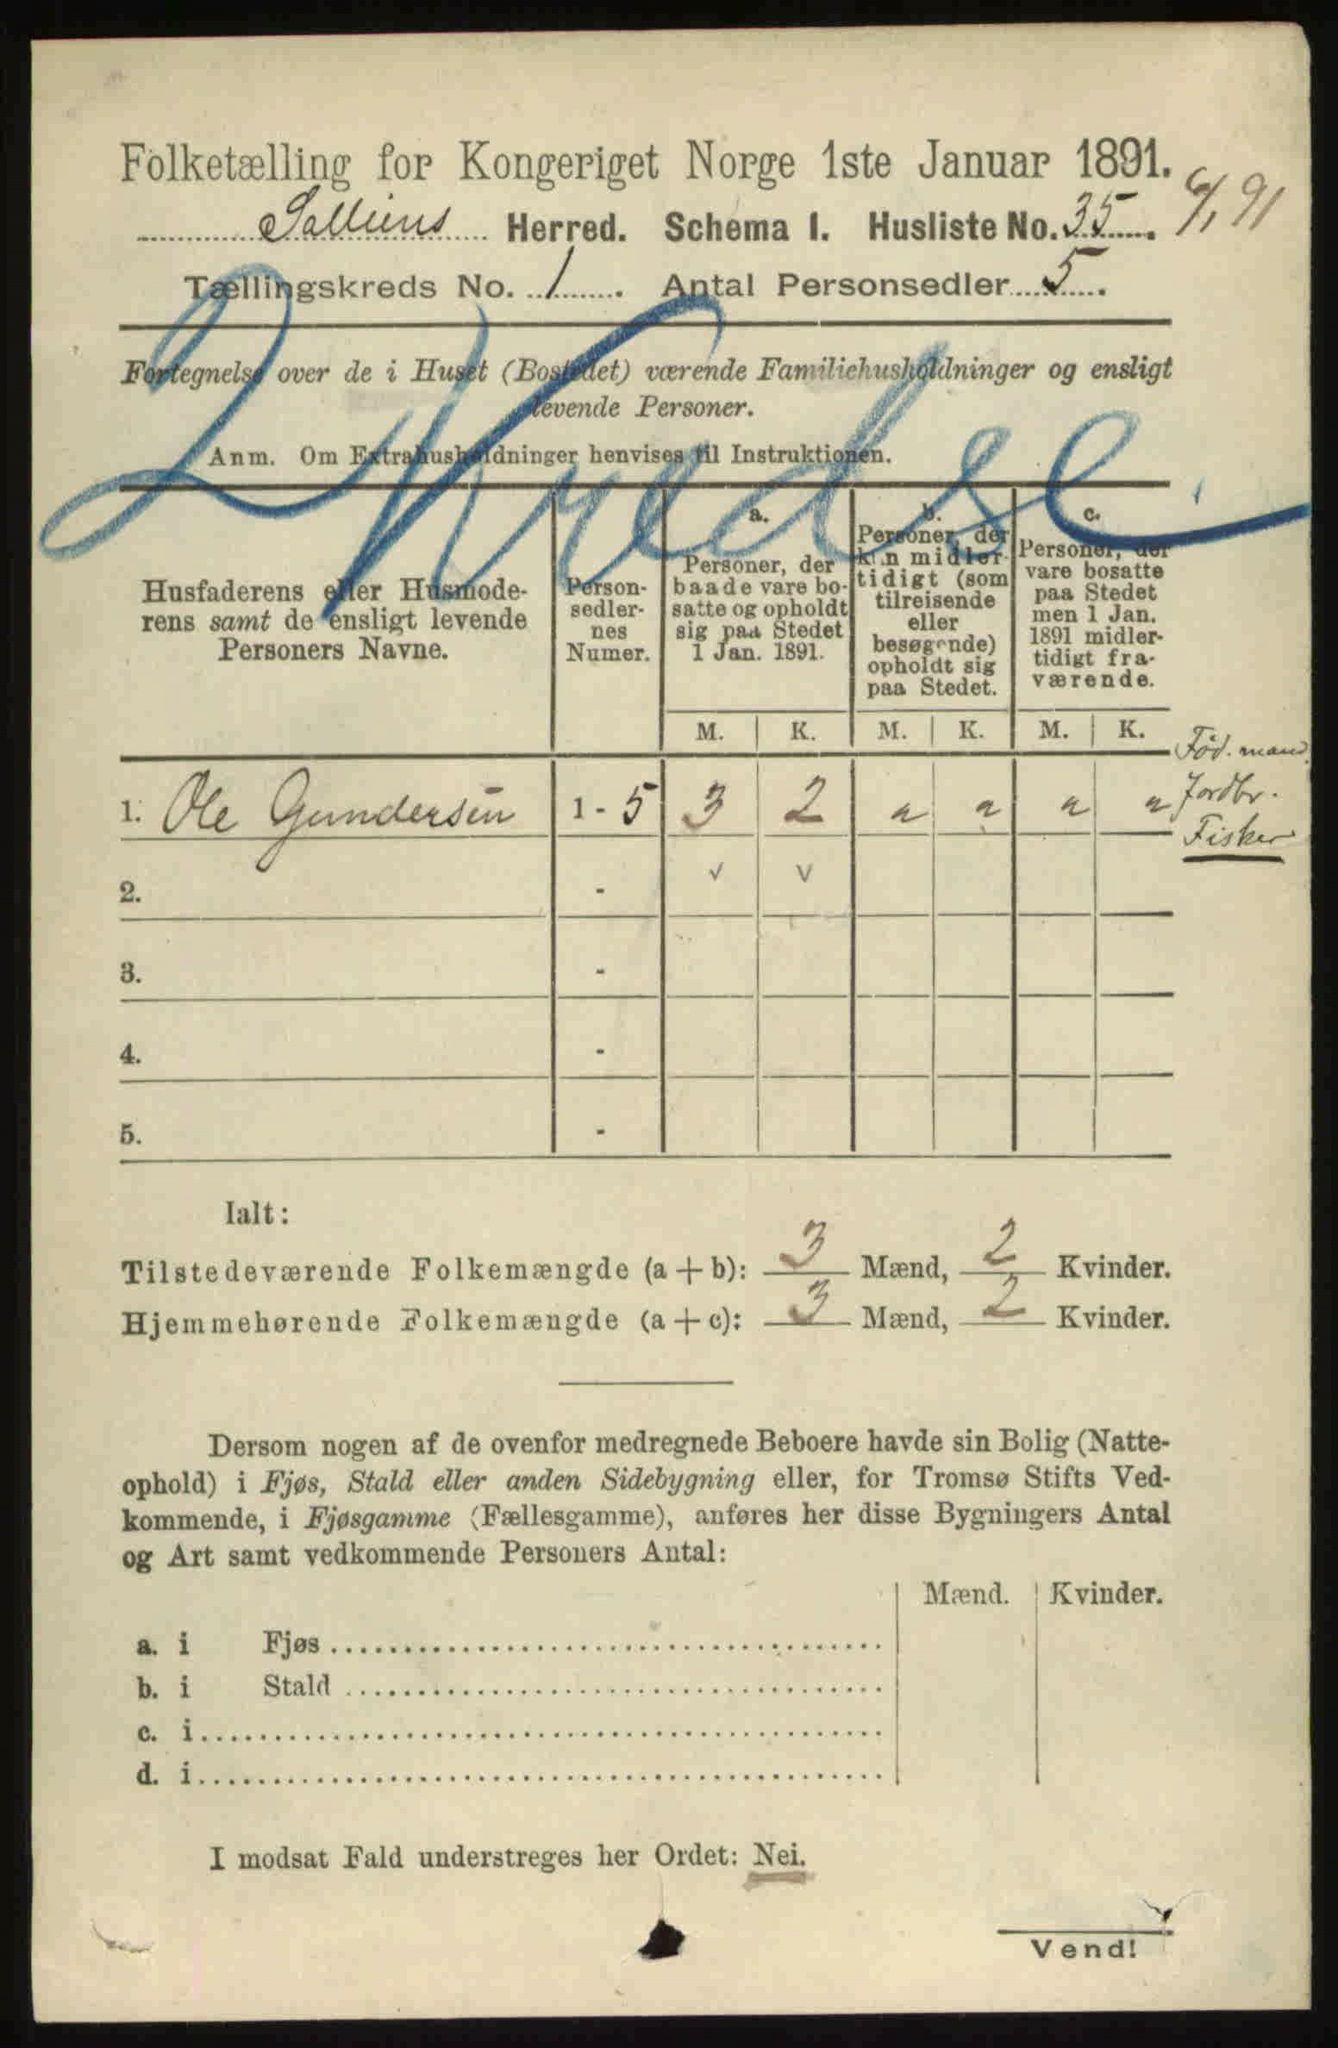 Folketælling for Kongeriget Norge 1ste Januar 1891.
Herred. Schema I. Husliste No. 35. 6/1 91
Tællingskreds No. 1. Antal Personsedler 5.
Fortegnelse over de i Huset (Bostedet) værende Familiehusholdninger og ensligt
levende Personer.
Anm. Om Extrahusholdninger henvises til Instruktionen.
2 Kredse
Husfaderens eller Husmode-
rens samt de ensligt levende
Personers Navne.
Person-
sedler-
nes
Numer.
a.
Personer, der
baade vare bo-
satte og opholdt
sig paa Stedet
1 Jan. 1891.
b.
Personer, der
kun midler-
tidigt (som
tilreisende
eller
besøgende)
opholdt sig
paa Stedet.
c.
Personer, der
vare bosatte
paa Stedet
men 1 Jan.
1891 midler-
tidigt fra-
værende.
M. K. M. K. M. K.
1. Ole Gundersen 1 - 5 3 2
Fød. mand.
Jordbr.
Fisker
2. - v v
3. -
4. -
5. -
Ialt:
Tilstedeværende Folkemængde (a + b): 3 Mænd, 2 Kvinder.
Hjemmehørende Folkemængde (a + c): 3 Mænd, 2 Kvinder.
Dersom nogen af de ovenfor medregnede Beboere havde sin Bolig (Natte-
ophold) i Fjøs, Stald eller anden Sidebygning eller, for Tromsø Stifts Ved-
kommende, i Fjøsgamme (Fællesgamme), anføres her disse Bygningers Antal
og Art samt vedkommende Personers Antal:
Mænd. Kvinder.
a. i Fjøs
b. i Stald
c. i
d. i
I modsat Fald understreges her Ordet: Nei.
Vend!